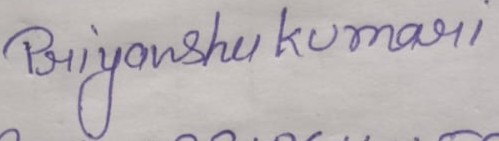 Priyanshu kumari